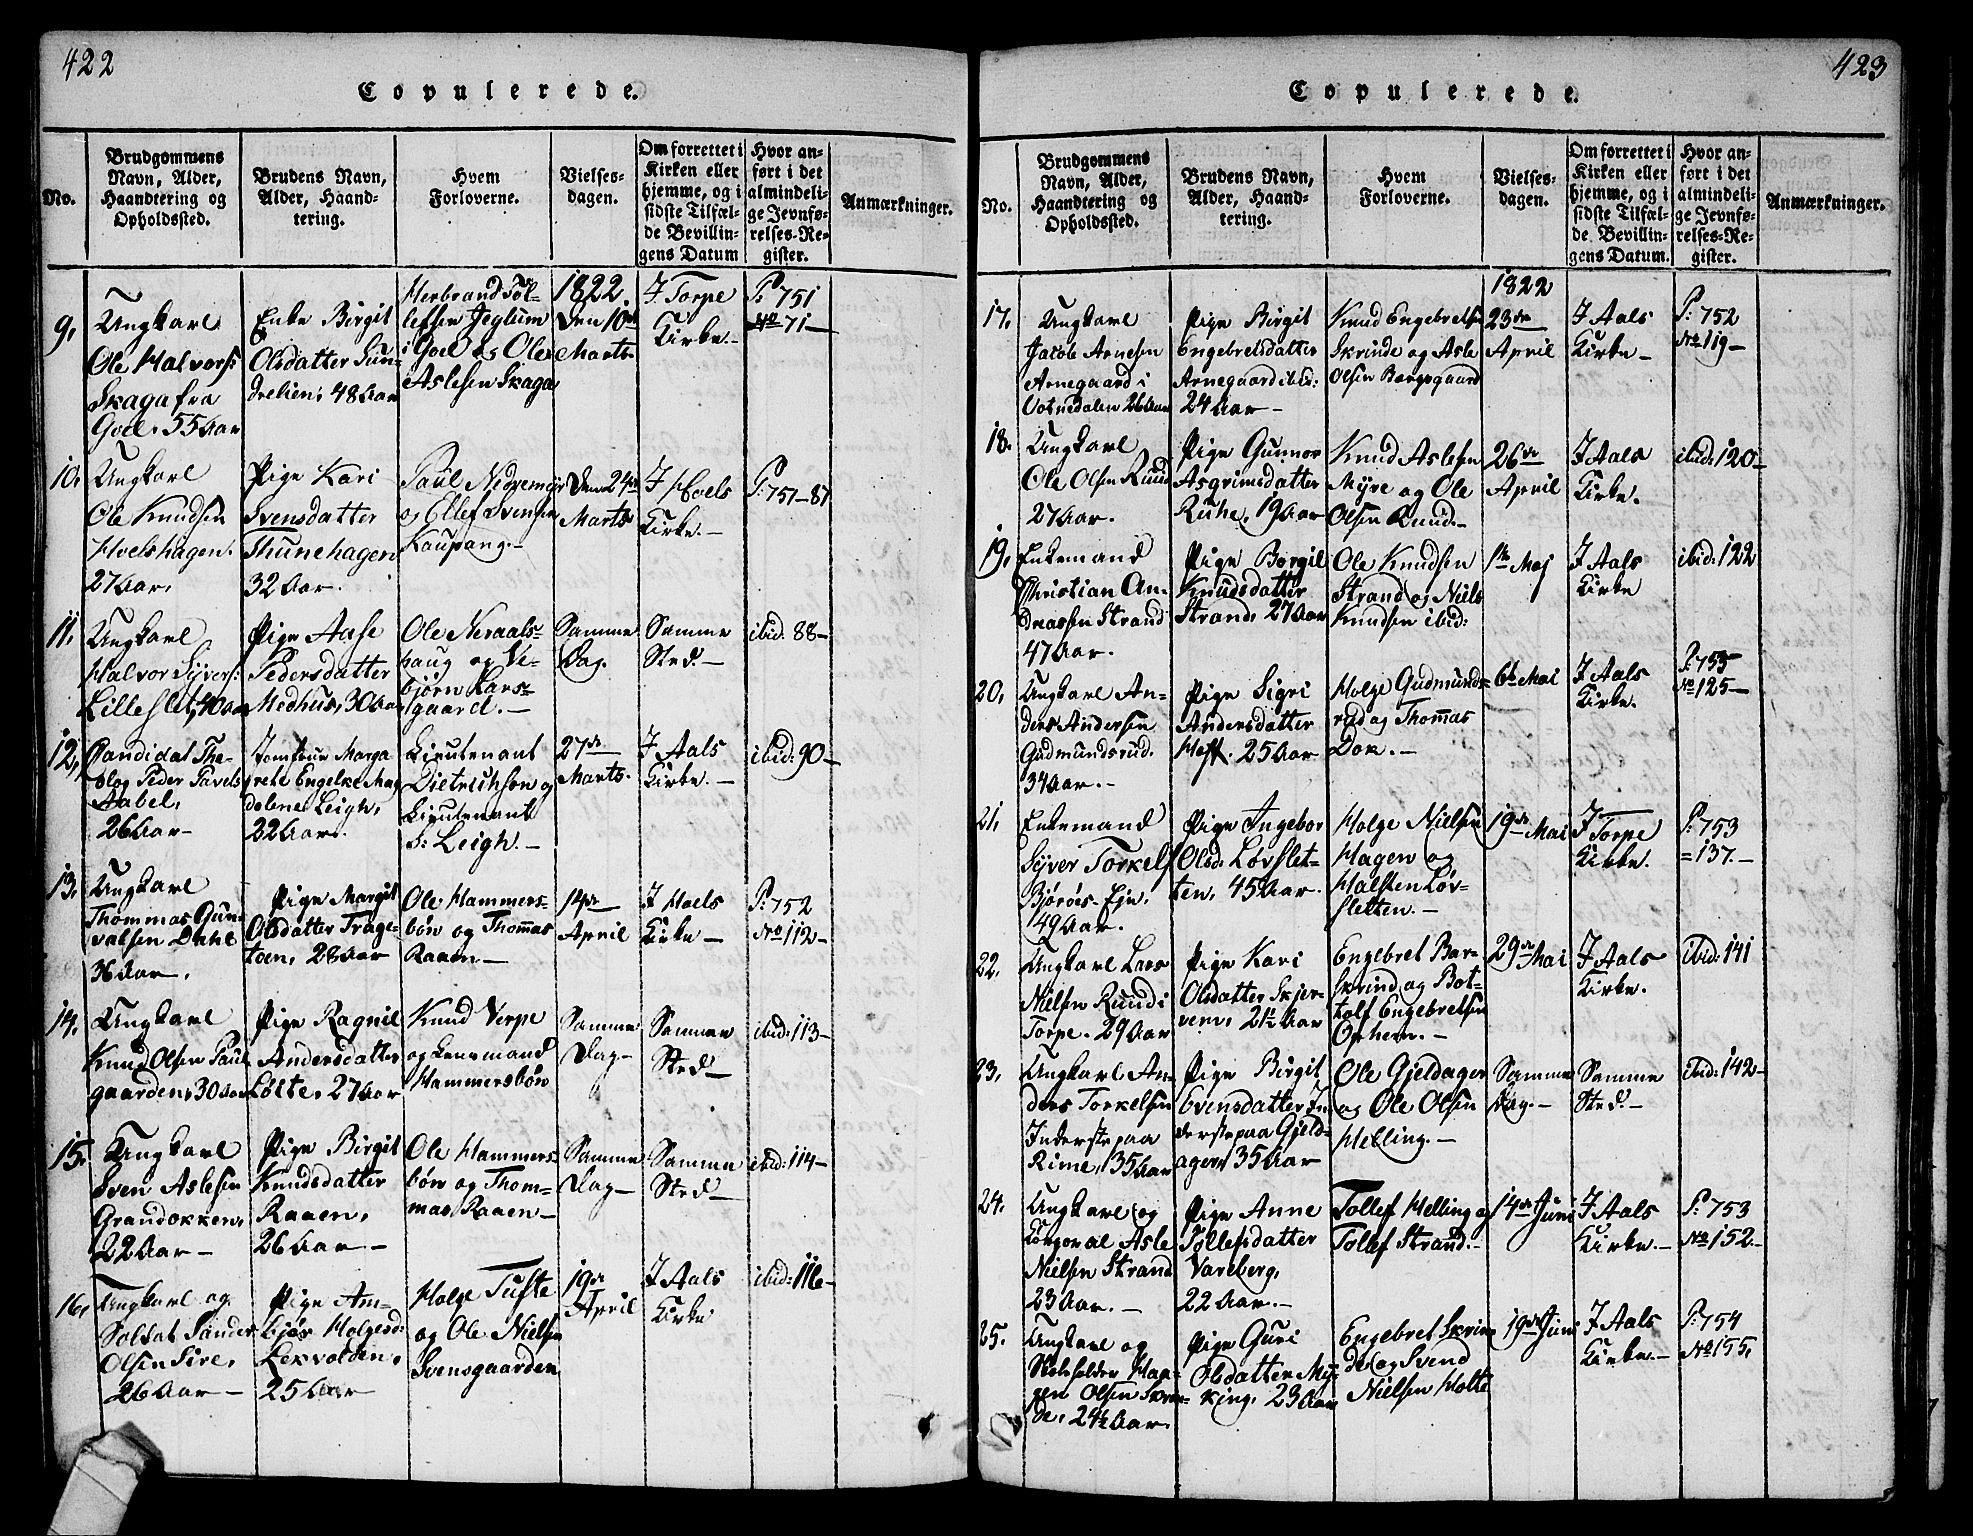 422
Copulerede.
No.
Brudgommens
Navn, Alder,
Haandtering og
Opholdssted.
Brudens Navn,
Alder, Haand-
tering.
Hvem
Forloverne.
Vielses-
dagen.
Om forrettet i
Kirken eller
hjemme, og i
sidste Tilfæl-
de Bevillin-
gens Datum
Hvor an-
ført i det
almindeli-
ge Jevnfø-
relses-Re-
gister.
Anmærkninger.
9,
Ungkarl
Ole Halvors:
Skaga fra
Goel, 55 Aar
Enke Birgit
Olsdatter Sun-
drelien, 48 Aar
Herbrand Tol-
lefsen Jeglum
i Goel og Ole
Aslesen Skaga
1822.
Den 10de
Marts.
I Torpe
Kirke.-
P: 751
No 71-
10.
Ungkarl
Ole Knudsen
Hoelshagen.
27 Aar,
Pige Kari
Svensdatter
Thunehagen
32 Aar.
Paul Nedremyr
og Ellef Svensen
Kaupang.-
Den 24de
Marts
I Hoels
Kirke.-
P: 751-87
11.
Ungkarl
Halvor Syvers:
Lilleslet, 40 Aar
Pige Aase
Pedersdatter
Medhus, 30 Aar
Ole Neraals-
haug og Ve-
bjørn Kars-
gaard.-
Samme
Dag.
Samme
Sted.-
ibid: 88-
12,
Candidat The-
olog Peder Pavels
Aabel,
26 Aar-
Jomfrue Marga
grete Engelke Mag
dalene Leigh,
22 Aar.
Lieutenant
Dietrichson og
Lieutenant
S: Leigh.-
27de
Marts.
I Aals
Kirke.-
ibid: 90-
13,
Ungkarl
Thommas Gun-
valsen Dahl
36 Aar.
Pige Margit
Olsdatter Trage-
toen, 28 Aar
Ole Hammers-
bøn og Thommas
Raaen-
14de
April
I Hoels
Kirke-
P: 752
No 112-
14,
Ungkarl
Knud Olsen Paul
gaarden, 30 Aar
Pige Ragnil
Andersdatter
Løite, 27 Aar
Knud Verpe
og Lensmand
Hammersbøn
Samme
Dag-
Samme
Sted-
ibid: 113-
15.
Ungkarl
Sven Aslesen
Grandokken,
22 Aar-
Pige Birgit
Knudsdatter
Raaen,
26 Aar.-
Ole Hammers-
bøn og Thom-
mas Raaen-
Samme
Dag-
Samme
Sted-
ibid: 114-
16,
Ungkarl og
Soldat Sander
Olsen Sire,
26 Aar-
Pige Am-
bjør Holgersd:
Lexvolden,
25 Aar
Holge Tufte
og Ole Nielsen
Svensgaarden
19de
April
I Aals
Kirke
ibid: 116-
423
Copulerede.
No.
Brudgommens
Navn, Alder,
Haandtering og
Opholdssted.
Brudens Navn,
Alder, Haand-
tering.
Hvem
Forloverne.
Vielses-
dagen.
Om forrettet i
Kirken eller
hjemme, og i
sidste Tilfæl-
de Bevillin-
gens Datum.
Hvor an-
ført i det
almindeli-
ge Jevnfø-
relses-Re-
gister.
Anmærkninger.
17.
Ungkarl
Jacob Arnesen
Arnegaard i
Votnedalen 26 Aar
Pige Birgit
Engebretsdatter
Arnegaard ibid:
24 Aar-
Knud Engebretsen
Skrinde og Asle
Olsen Bergsgaard
1822
23de
April
I Aals
Kirke-
P: 752
No 119-
18.
Ungkarl
Ole Olsen Ruud
27 Aar.
Pige Gunnor
Asgrimsdatter
Ruhe, 19 Aar
Knud Aslesen
Myre og Ole
Olsen Ruud.-
26de
April
I Aals
Kirke.
ibid: 120-
19,
Enkemand
Christian An-
dreassen Strand
47 Aar.
Pige Borgil
Knudsdatter
Strand, 27 Aar
Ole Knudsen
Strand og Niels
Knudsen ibid:
1te Maj
I Aals
Kirke
ibid: 122
20,
Ungkarl An-
ders Andersen
Gudmundsrud.
34 Aar.-
Pige Sigri
Andersdatter
25 Aar
Holge Gudmunds-
rud og Thommas
Dok.-
6te Mai
I Aals
Kirke.
P: 753
No 125-
21,
Enkemand
Syver Torkels
Bjørøes Eje,
49 Aar.
Pige Ingebor
Olsd: Løvslet-
ten, 45 Aar.
Holge Nielsen
Hagen og
Halsten Løv-
sletten.-
19de Mai
I Torpe
Kirke.
P: 753
=137.-
22,
Ungkarl Lars
Nielsen Ruud i
Torpe. 29 Aar
Pige Kari
Olsdatter Skjer-
ven, 21½ Aar
Engebret Bar-
skrind og Bot-
tolf Engebretsen
Opheim.-
29de Mai
I Aals
Kirke.
ibid: 141
23,
Ungkarl An-
ders Torkelsen
Inderstepaa
Rime, 35 Aar
Pige Birgit
Evensdatter In-
derstepaa Gjeld-
ager, 35 Aar
Ole Gjeldager
og Ole Olsen
Helling.-
Samme
Dag.-
Samme
Sted.-
ibid: 142-
24.
Ungkarl og
Corporal Asle
Nielsen Strand
23 Aar.-
Pige Anne
Tollefsdatter
Vareberg,
22 Aar.-
Tollef Helling og
Tollef Strand.-
14de Juni
I Aals
Kirke.-
P: 753
No 152.-
25.
Ungkarl og
Skoleholder Haa-
gen Olsen Skrin-
de, 24½ Aar.
Pige Guri
Olsdatter My-
king, 23 Aar
Engebret Skrin
de og Svend
Nielsen Holte
19de Juni
I Aals
Kirke.-
P: 754
No 155,